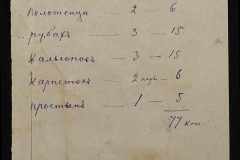 Полотенца — 2 — 6
рубахъ — 3 — 15
Кальсоновъ — 3 — 15
Карпетокъ — 2 пары — 6
простынь — 1 — 5
77 коп.